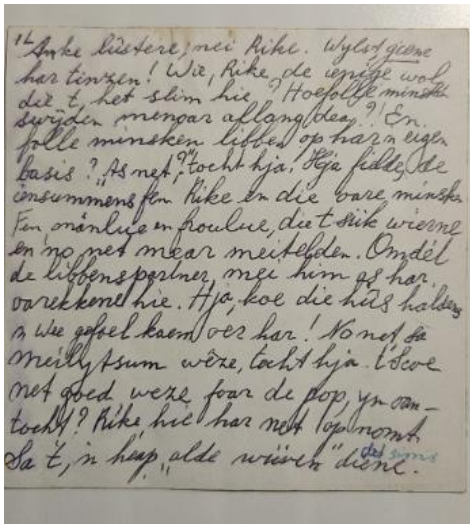 14
Anke lûstere, nei Rike. Wylst giene
har tinzen! Wie, Rike, de ienige wol
die 't, het slim hie? Hoefolle minsken
swijden menoar oflang dea?! En
folle minsken libben op har'n eigen
basis? "As net?", tocht hja! Hja fielde, de
iensummens fen Rike en die oare minsken
Fen, mânlue en froulue, die 't siik wierne
en no net mear meitelden. Omdêl
de libbenspartner, mei him as har,
oarekkene hie. Hja, koe die hûs halden
'n wee gefoel kaem oer har! No net sa
meilytsum wêze, tocht hja. 't Scoe
net goed weze foar de pop, yn oan-
tocht? Rike hie har net opnomt.
Sa 't, 'n heap "alde wiiven" diene.